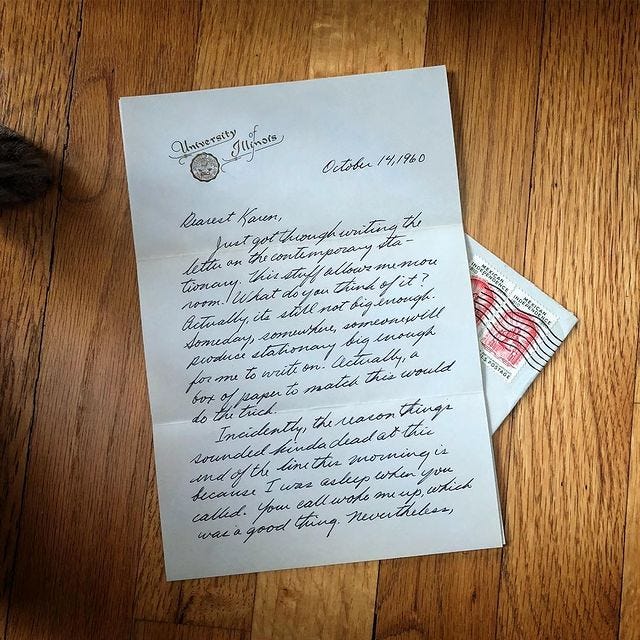 University of Illinois
October 14, 1960
Dearest Karen,
Just got through writing the
letter on the contemporary sta-
tionary. This stuff allows me more
room. What do you think of it?
Actually, its still not big enough.
Someday, somewhere, someone will
produce stationary big enough
for me to write on. Actually, a
box of paper to match this would
do the trick.
Incidently, the reason things
sounded kinda dead at this
end of the line this morning is
because I was asleep when you
called. Your call woke me up, which
was a good thing. Nevertheless,
MEXICAN
INDEPENDENCE
MEXICAN
INDEPENDENCE
POSTAGE